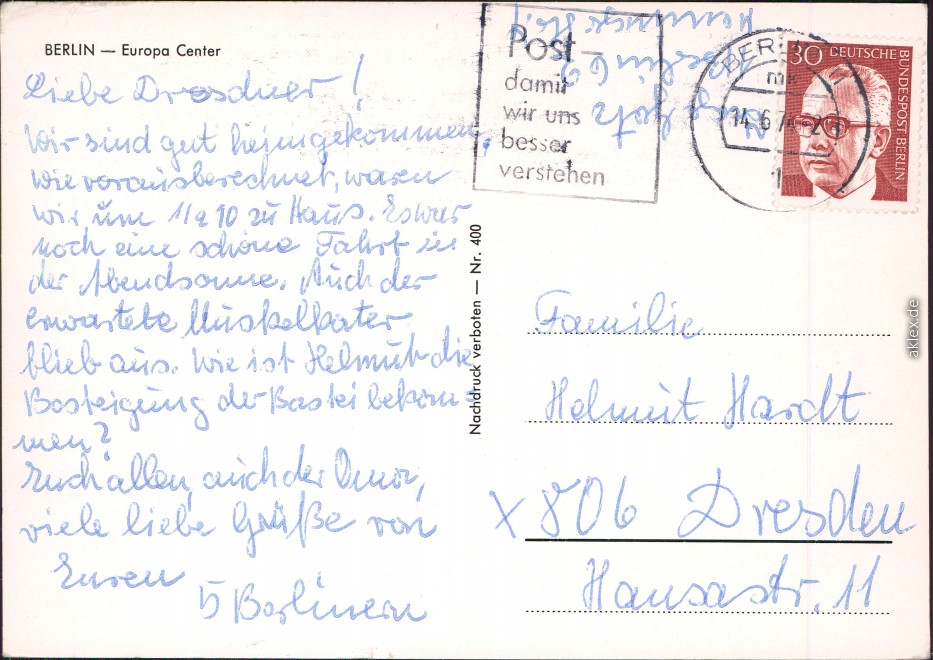 BERLIN — Europa Center
Liebe Dresdner!
Wir sind gut heimgekommen,
wie vorausberechnet, waren
wir um 1/2 10 zu Haus. Es war
noch eine schöne Fahrt in
der Abendsonne. Auch der
erwartete Muskelkater
blieb aus. Wie ist Helmut die
Besteigung der Bastei bekom-
men?
Euch allen, auch der Omor,
viele liebe Grüße von
Euren
5 Berlinern
Nachdruck verboten — Nr. 400
Post —
damit
wir uns
besser
verstehen
BERLIN 11
mk
14.6.74
1
30 DEUTSCHE
BUNDESPOST BERLIN
Familie
Helmut Hardt
X 806 Dresden
Hansastr. 11
aklex.de